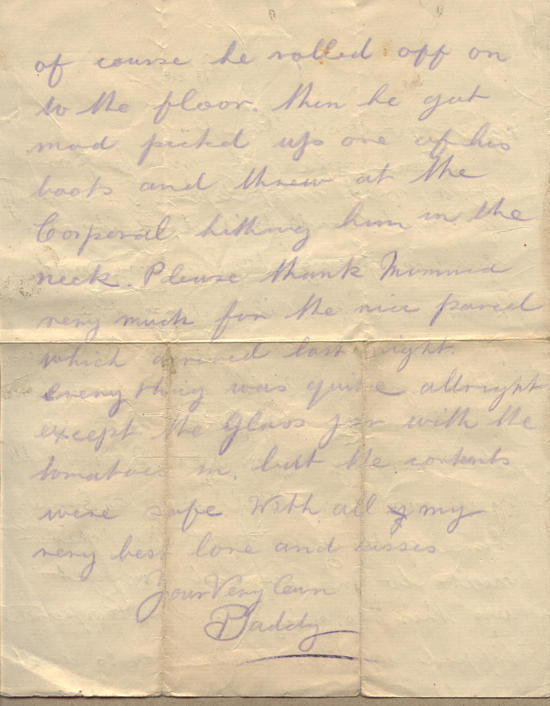 of course he rolled off on
to the floor. then he got
mad picked up one of his
boots and threw at the
Corporal hitting him in the
neck. Please thank Mummie
very much for the nice parcel
which arrived last night.
Everything was quite allright
except the glass jar with the
tomatoes in, but the contents
were safe With all my
very best love and kisses
Your Very Own
Daddy